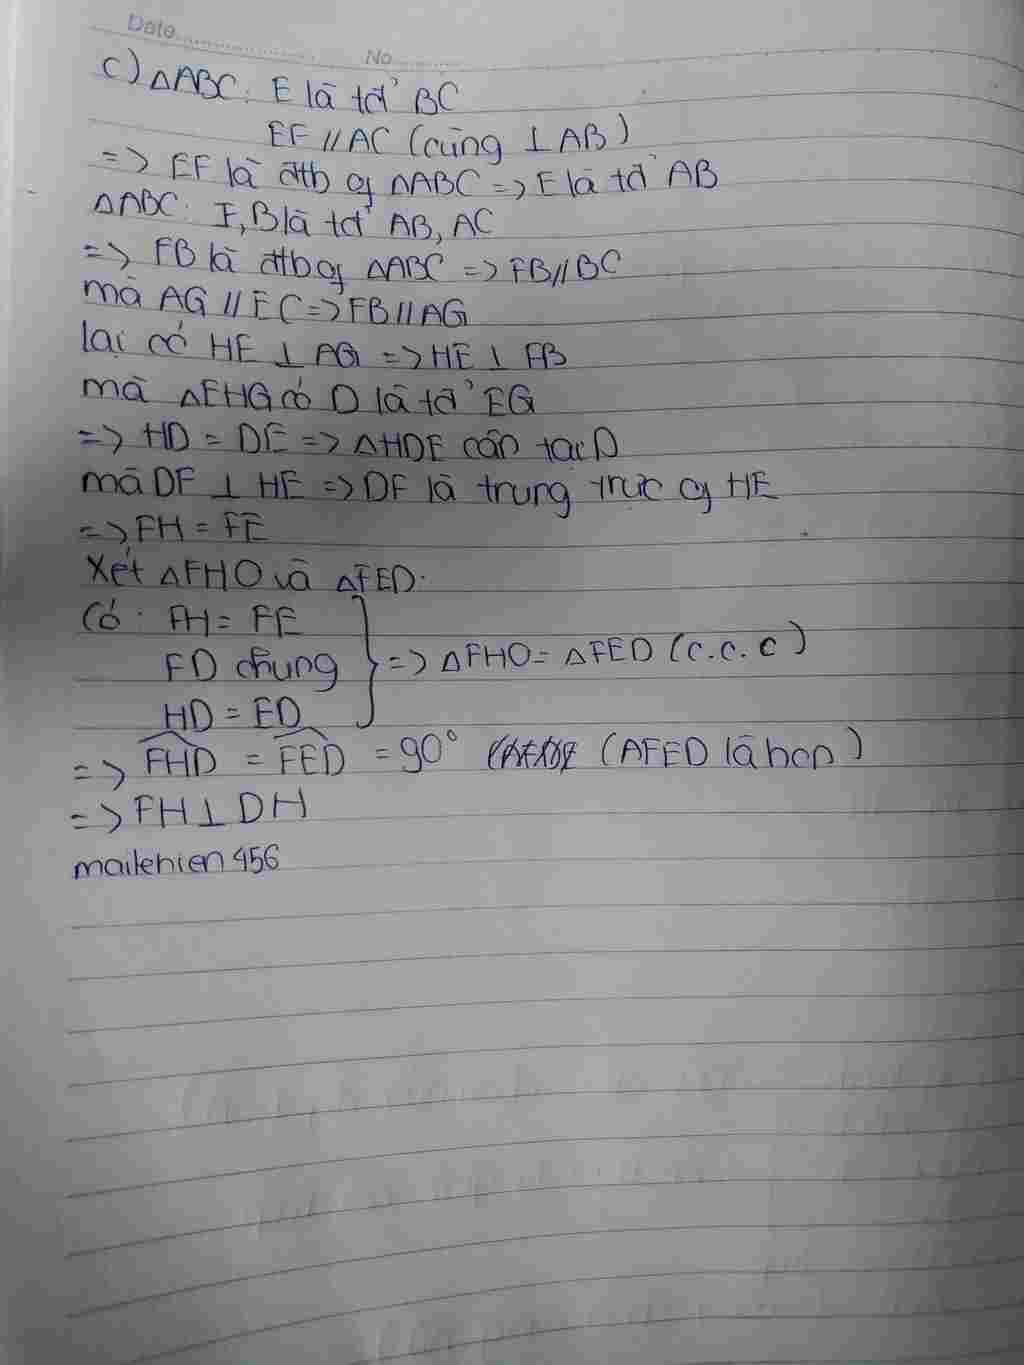 Date
No
c) △ABC: E là tđ' BC
EF // AC (cùng ⊥ AB)
=> EF là đtb củ △ABC => F là tđ' AB
△ABC: F, D là tđ' AB, AC
=> FD là đtb củ △ABC => FD // BC
mà AG // EC => FD // AG
lại có HE ⊥ AG => HE ⊥ FD
mà △EHG có D là tđ' EG
=> HD = DE => △HDE cân tại D
mà DF ⊥ HE => DF là trung trực củ HE
=> FH = FE
Xét △FHD và △FED:
Có: FH = FE
FD chung
=> △FHD = △FED (c.c.c)
HD = ED
=> FHD = FED = 90° (AFED là hcn)
=> FH ⊥ DH
mailehien456